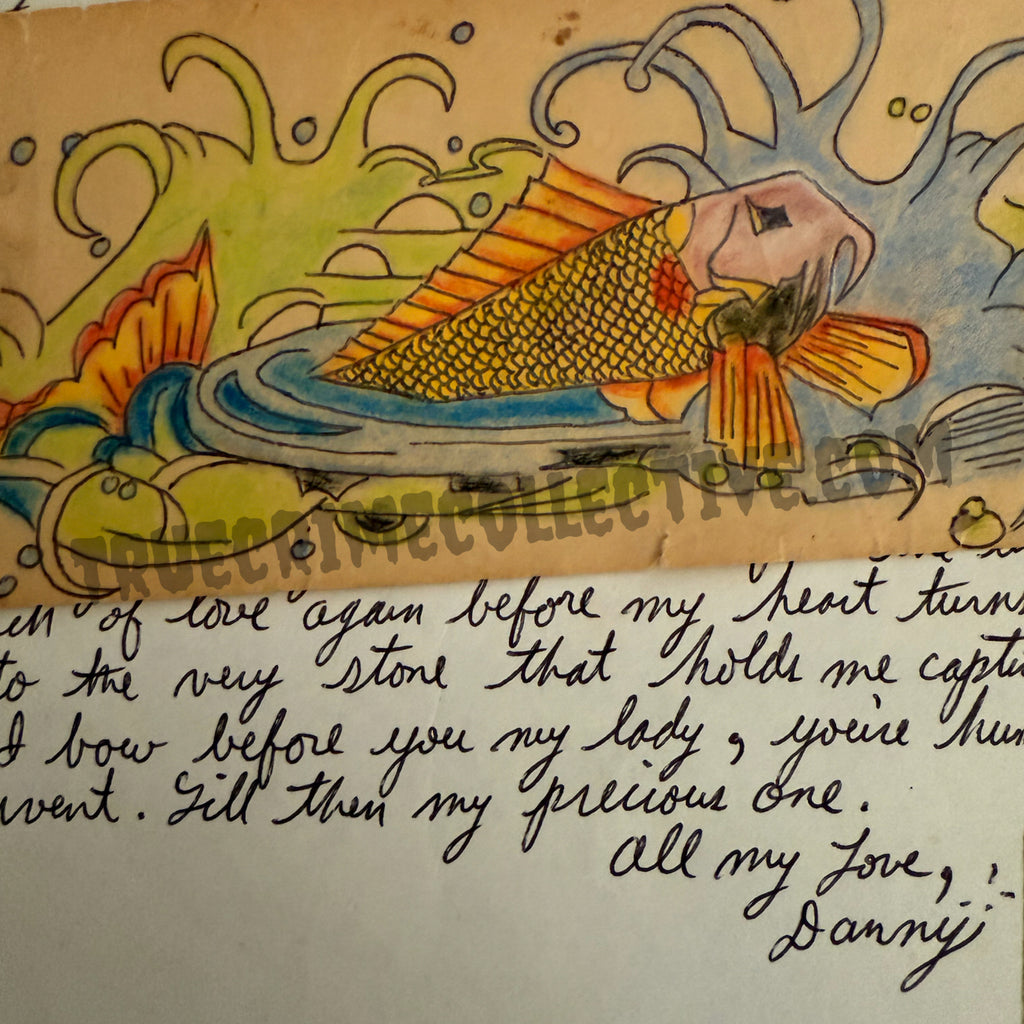 TRUECRIMECOLLECTIVE.COM
of love again before my heart turns
to the very stone that holds me
I bow before you my lady, you're
Till then my precious one.
All my Love,
Danny